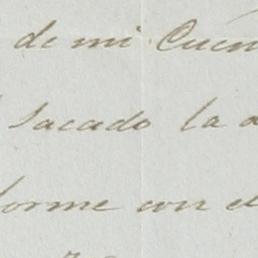 de mi Cuen
sacado la a
forme con el